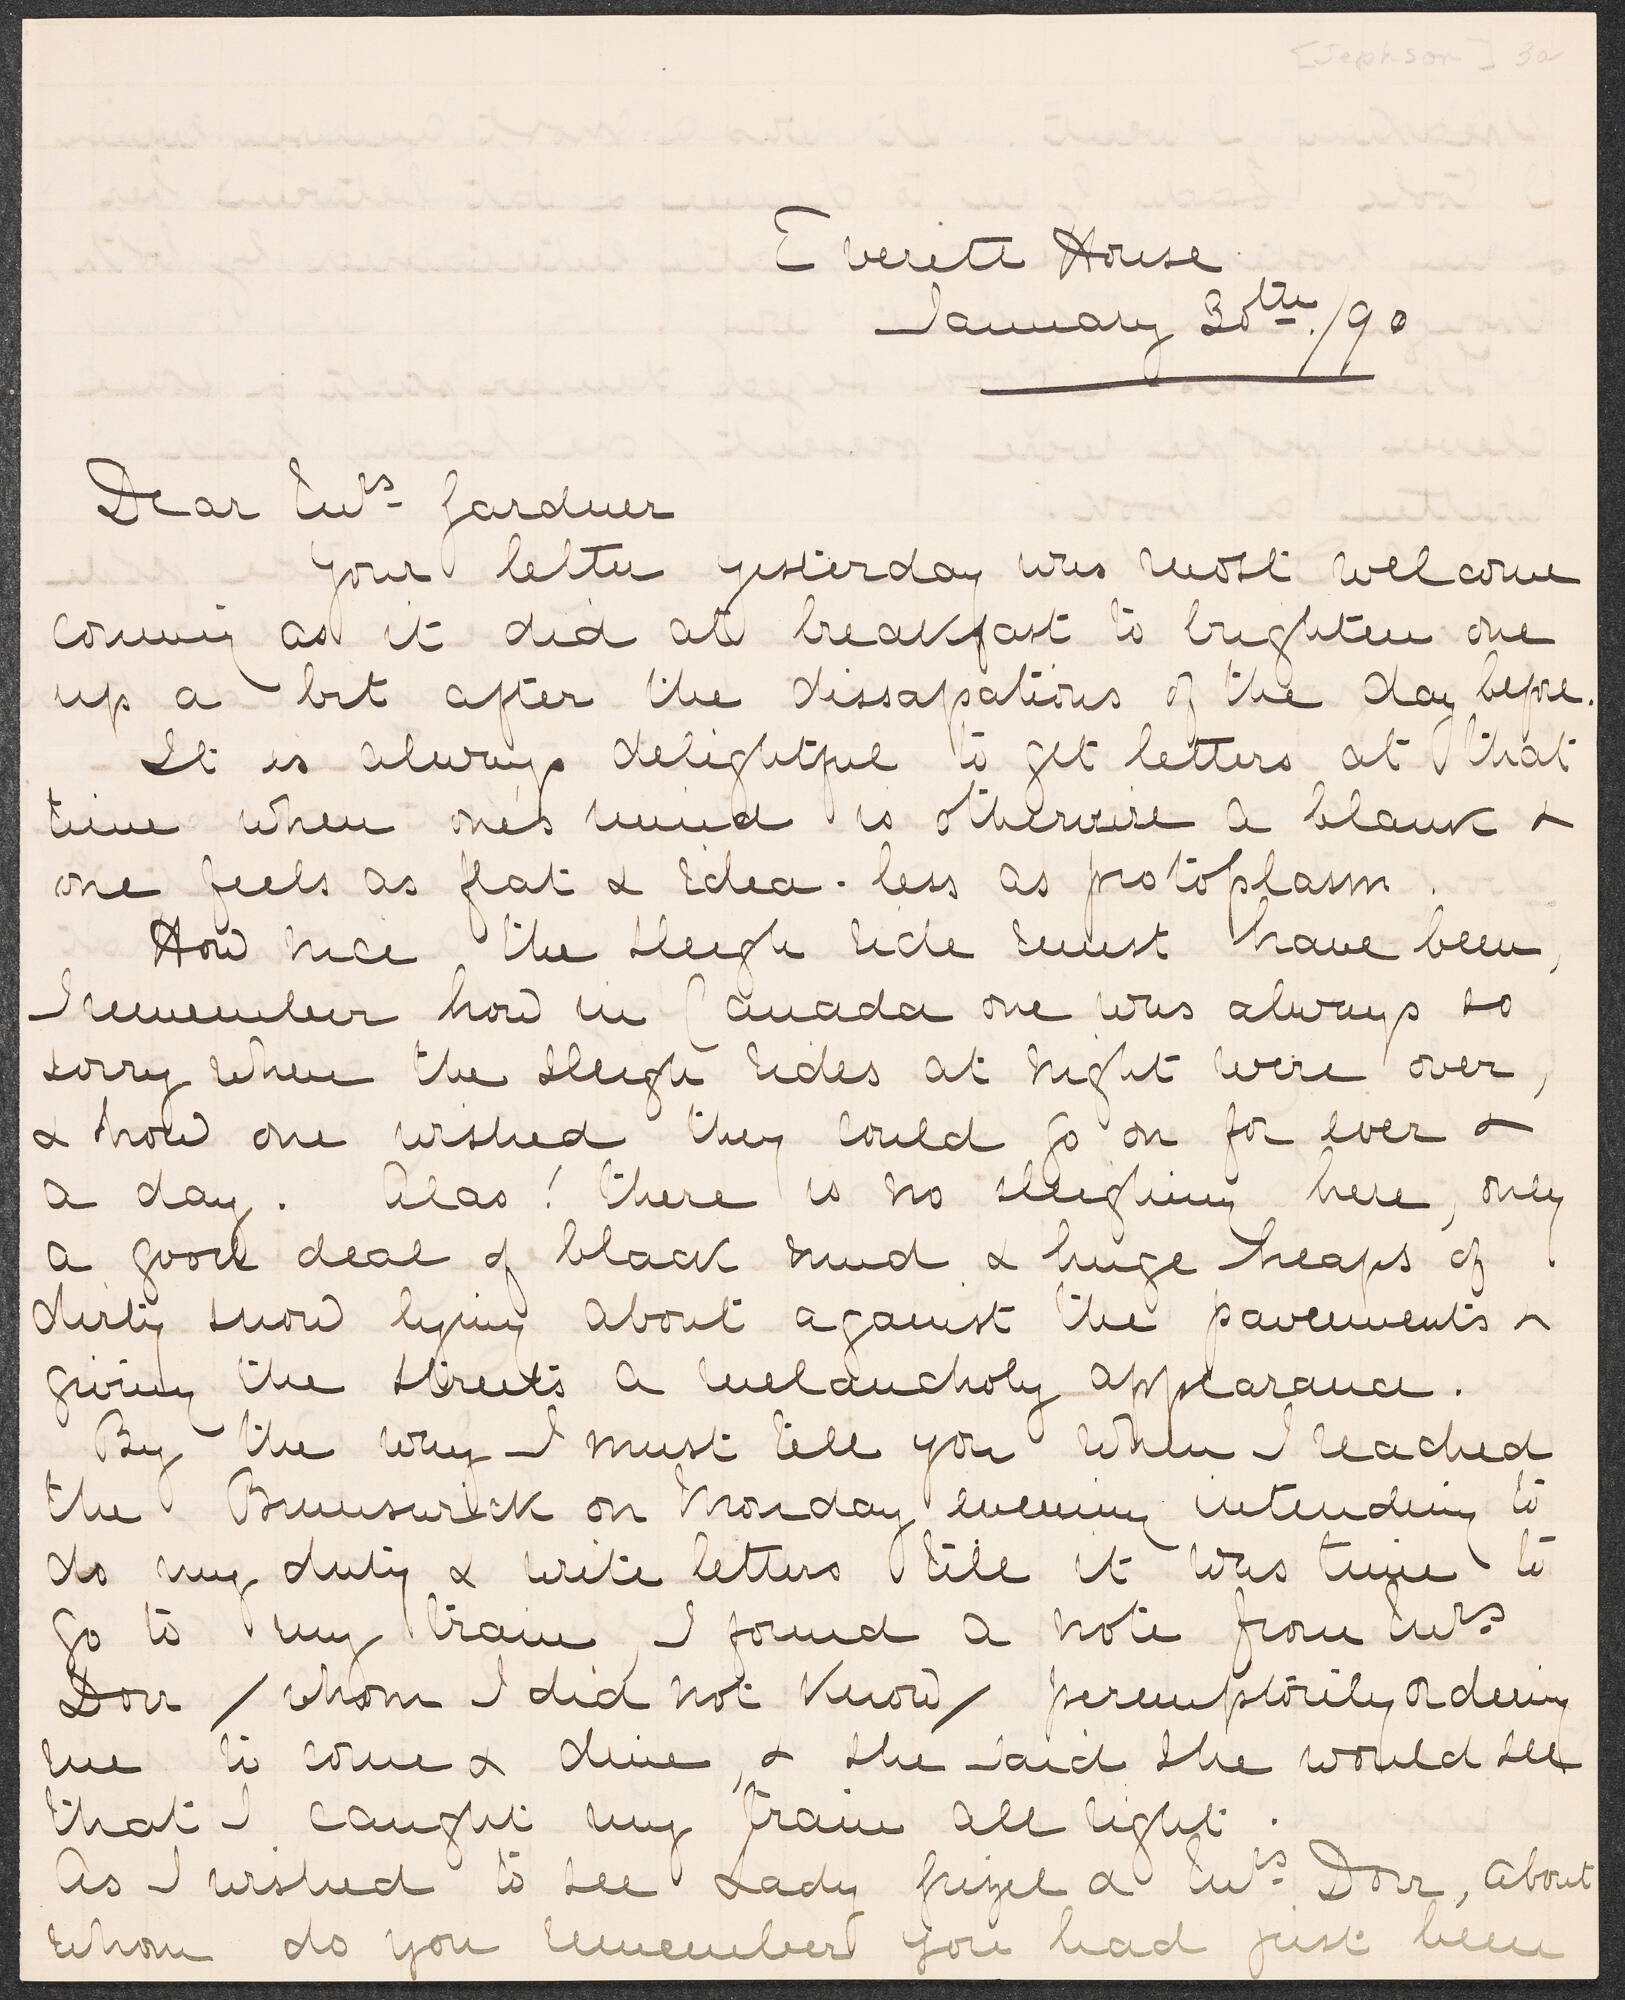 [Jephson] 3a
Everett House
January 30th./90
Dear Mrs Gardner
Your letter yesterday was most welcome
coming as it did at breakfast to brighten one
up a bit after the dissapations of the day before.
It is always delightful to get letters at that
time when one's mind is otherwise a blank &
one feels as flat & idea-less as protoplasm.
How nice the sleigh ride must have been,
I remember how in Canada one was always so
sorry when the sleigh rides at night were over,
& how one wished they could go on for ever &
a day. Alas! there is no sleighing here, only
a good deal of black mud & huge heaps of
dirty snow lying about against the pavements &
giving the streets a melancholy appearance.
By the way I must tell you when I reached
the Brunswick on Monday evening intending to
do my duty & write letters till it was time to
go to my train, I found a note from Mrs
Dorr /whom I did not know/ peremptorily ordering
me to come & dine, & she said she would see
that I caught my train all right.
As I wished to see Lady & Mrs Dorr, about
whom do you remember you had just been